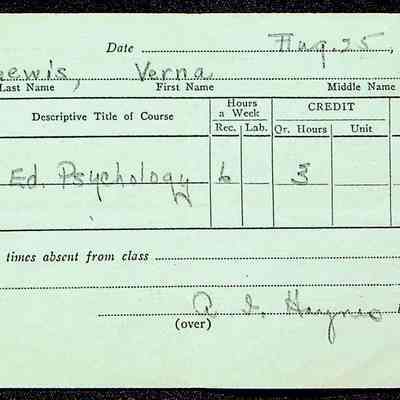 Date Aug. 25,
Lewis, Verna
Last Name First Name Middle Name
Descriptive Title of Course Hours a Week CREDIT
Rec. Lab. Qr. Hours Unit
Ed. Psychology 6 3
times absent from class
(over)